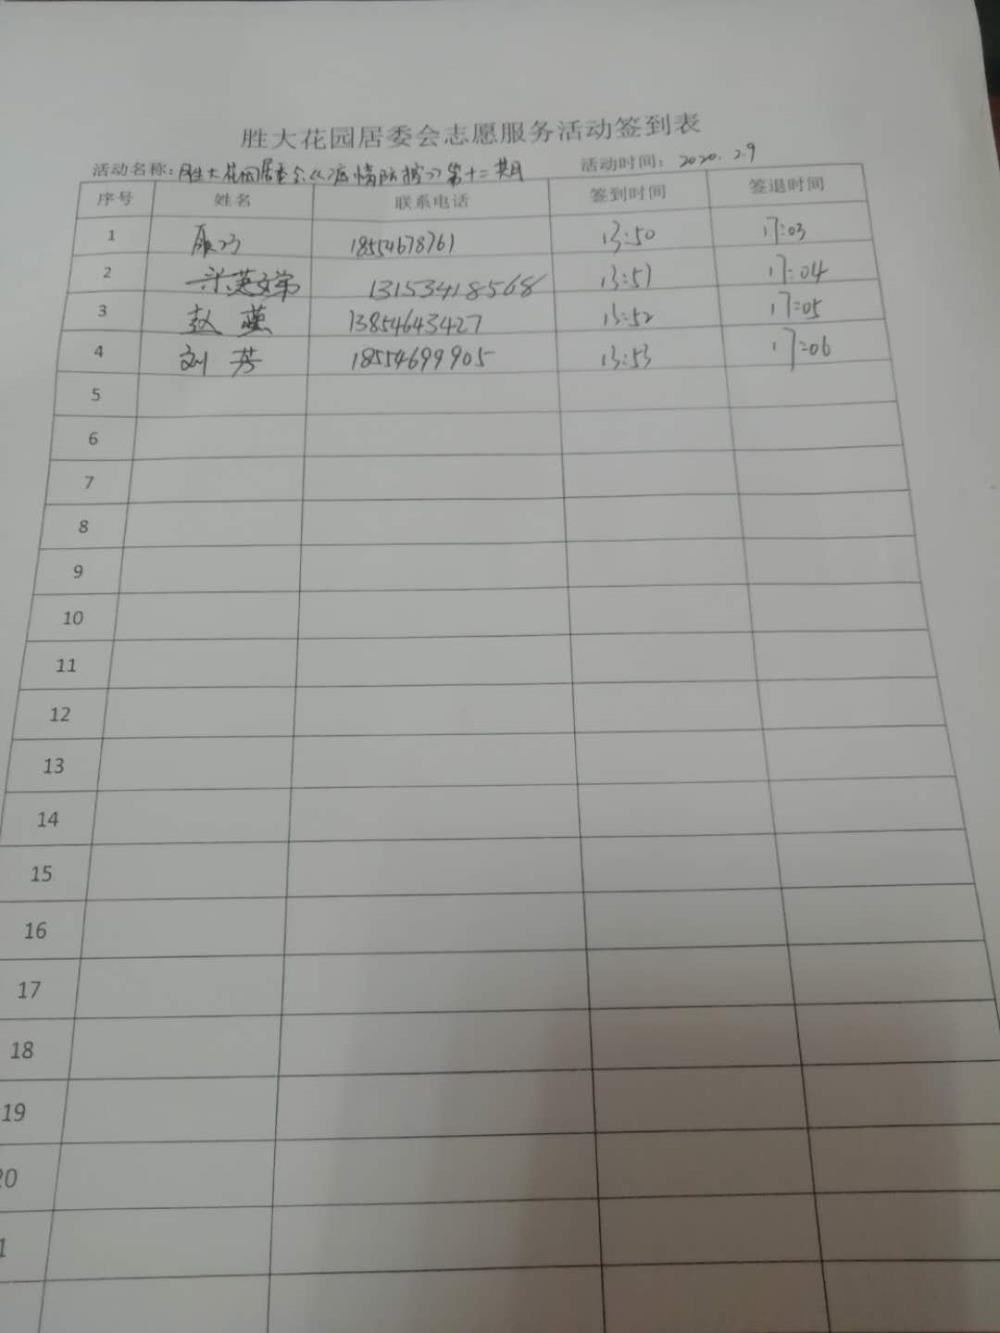 胜大花园居委会志愿服务活动签到表
活动名称：胜大花园居委会《疫情防控》第十二期 活动时间：2020.2.9
序号 姓名 联系电话 签到时间 签退时间
1 18554678761 13:50 17:03
2 13153418568 13:51 17:04
3 赵燕 13854643427 13:52 17:05
4 刘芳 18554699905 13:53 17:06
5
6
7
8
9
10
11
12
13
14
15
16
17
18
19
20
1